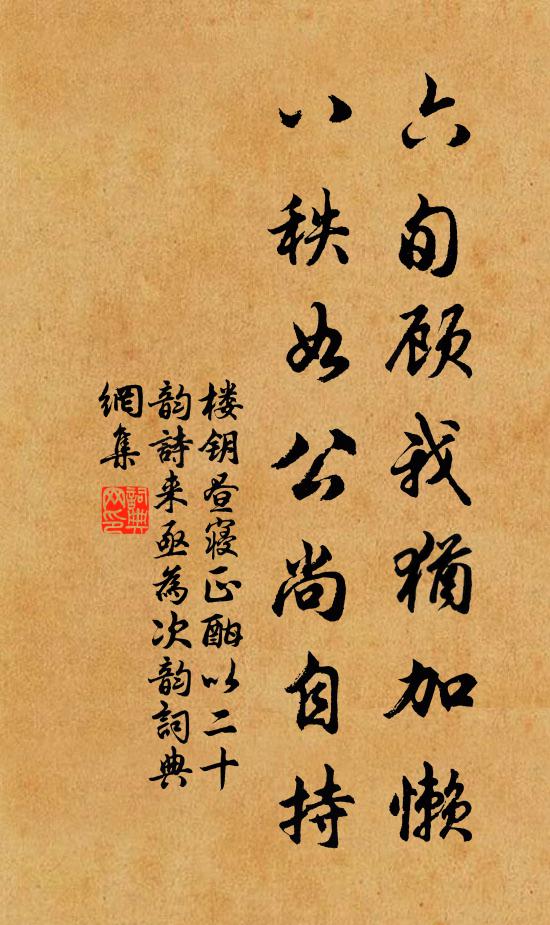 六旬顾我犹加懒
八秩如公尚自持
楼钥昼寝正酣以二十
韵詩来亟為次韵詞典
網集
詞典
网印